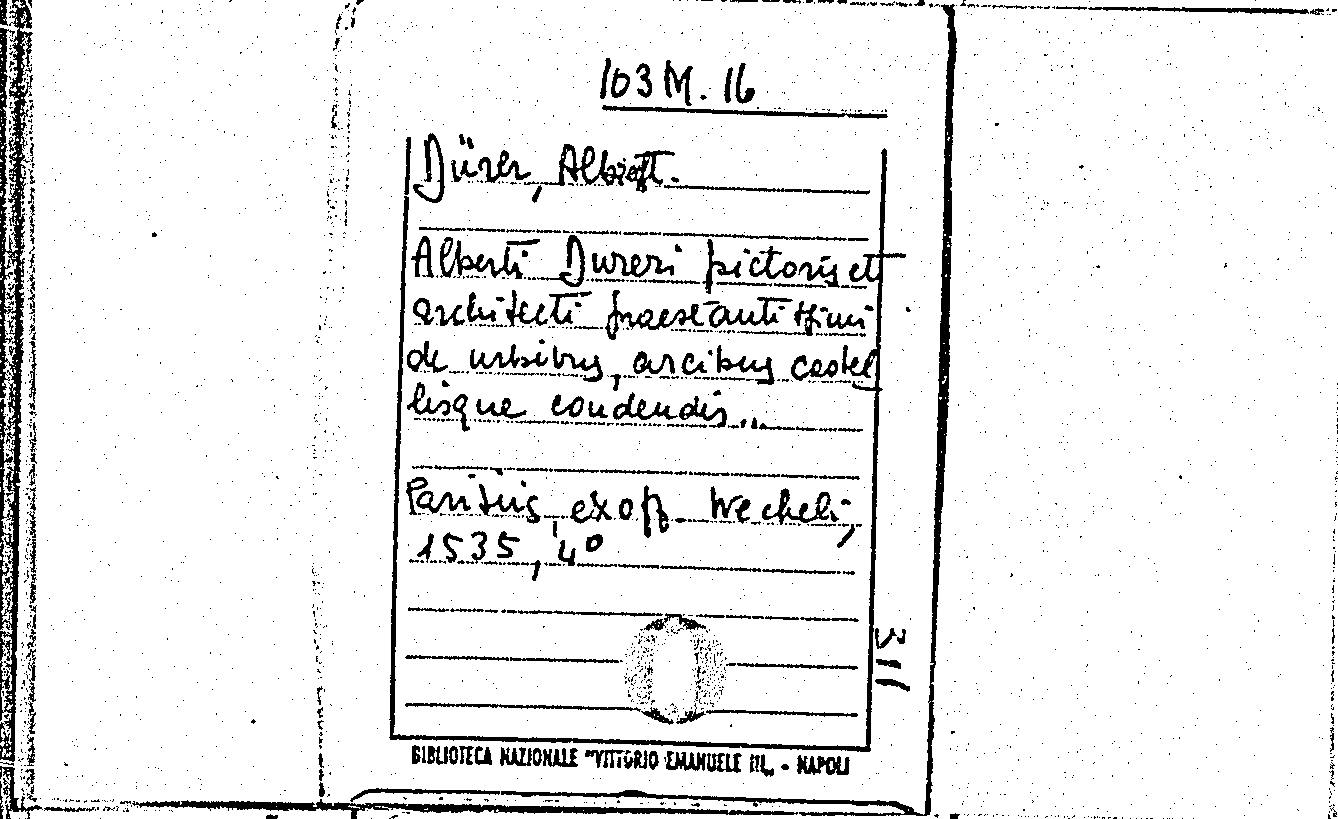 103 M. 16
Dürer, Albrecht.
Alberti Dureri pictoris et
architecti praestantissimi
de urbibus, arcibus castel
lisque condendis...
Parisiis, ex off. Wecheli,
1535, 4º
311
BIBLIOTECA NAZIONALE "VITTORIO EMANUELE III„ - NAPOLI